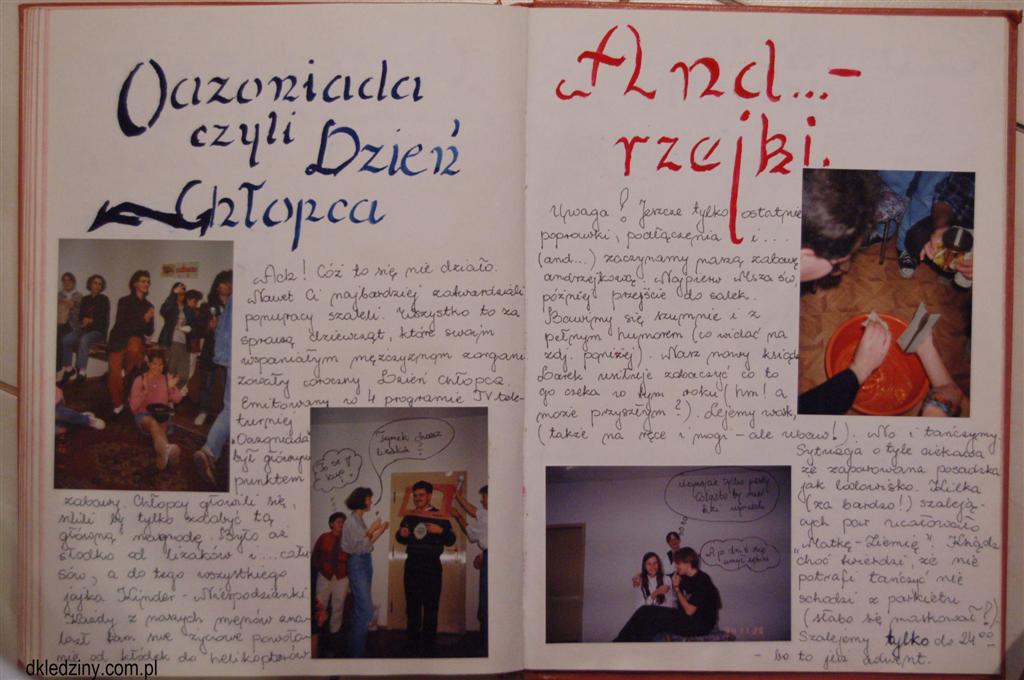 Oazoniada
czyli Dzień
Chłopca
Ach! Cóż to się nie działo.
Nawet Ci najbardziej zatwardziali
ponuracy szaleli. Wszystko to za
sprawą dziewcząt, które swoim
wspaniałym mężczyznom zorgani
zowały coroczny Dzień Chłopca.
Emitowany w 4 programie TV tele-
turniej
"Oazoniada"
był głównym
punktem
zabawy. Chłopcy głowili się,
by tylko zdobyć tą
główną nagrodę. Było aż
słodko od lizaków i....cału
sów, a do tego wszystkiego
jajka Kinder-Niespodzianki.
Każdy z naszych mężnów zna-
lazł tam swe życiowe powoła-
nie od kłódek do helikopterów
Tymek chcesz
lizaka?
And...-
rzejki.
Uwaga! Jeszcze tylko ostatnie
poprawki, podłączenia i....
(and...) zaczynamy naszą zabawę
andrzejkową? Najpierw Msza św,
później przejście do salek.
Bawimy się szumnie i z
pełnym humorem (co widać na
zdj. poniżej). Nasz nowy ksiądz
Darek usiłuje zobaczyć co to
go czeka w tym roku (hm! a
może przyszłym?). Lejemy wosk,
(także na ręce i nogi - ale ubaw!). No i tańczymy.
Sytuacja o tyle ciekawa
że zaparowana posadzka
jak lodowisko. Kilka
(za bardzo!) szalejq-
cych par ucałowało
"Matkę-Ziemię". Ksiądz
choć twierdzi, że nie
potrafi tańczyć nie
schodzi z parkietu
(słabo się maskował?)
Szalejemy tylko do 24⁰⁰ -
- bo to już adwent.
A jo dziś się
umył zęby
dkledziny.com.pl